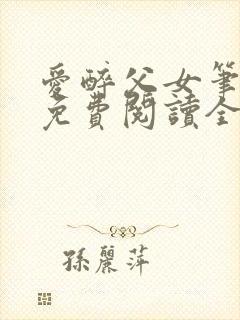 愛醉父女筆
免費閱讀全
孫麗萍